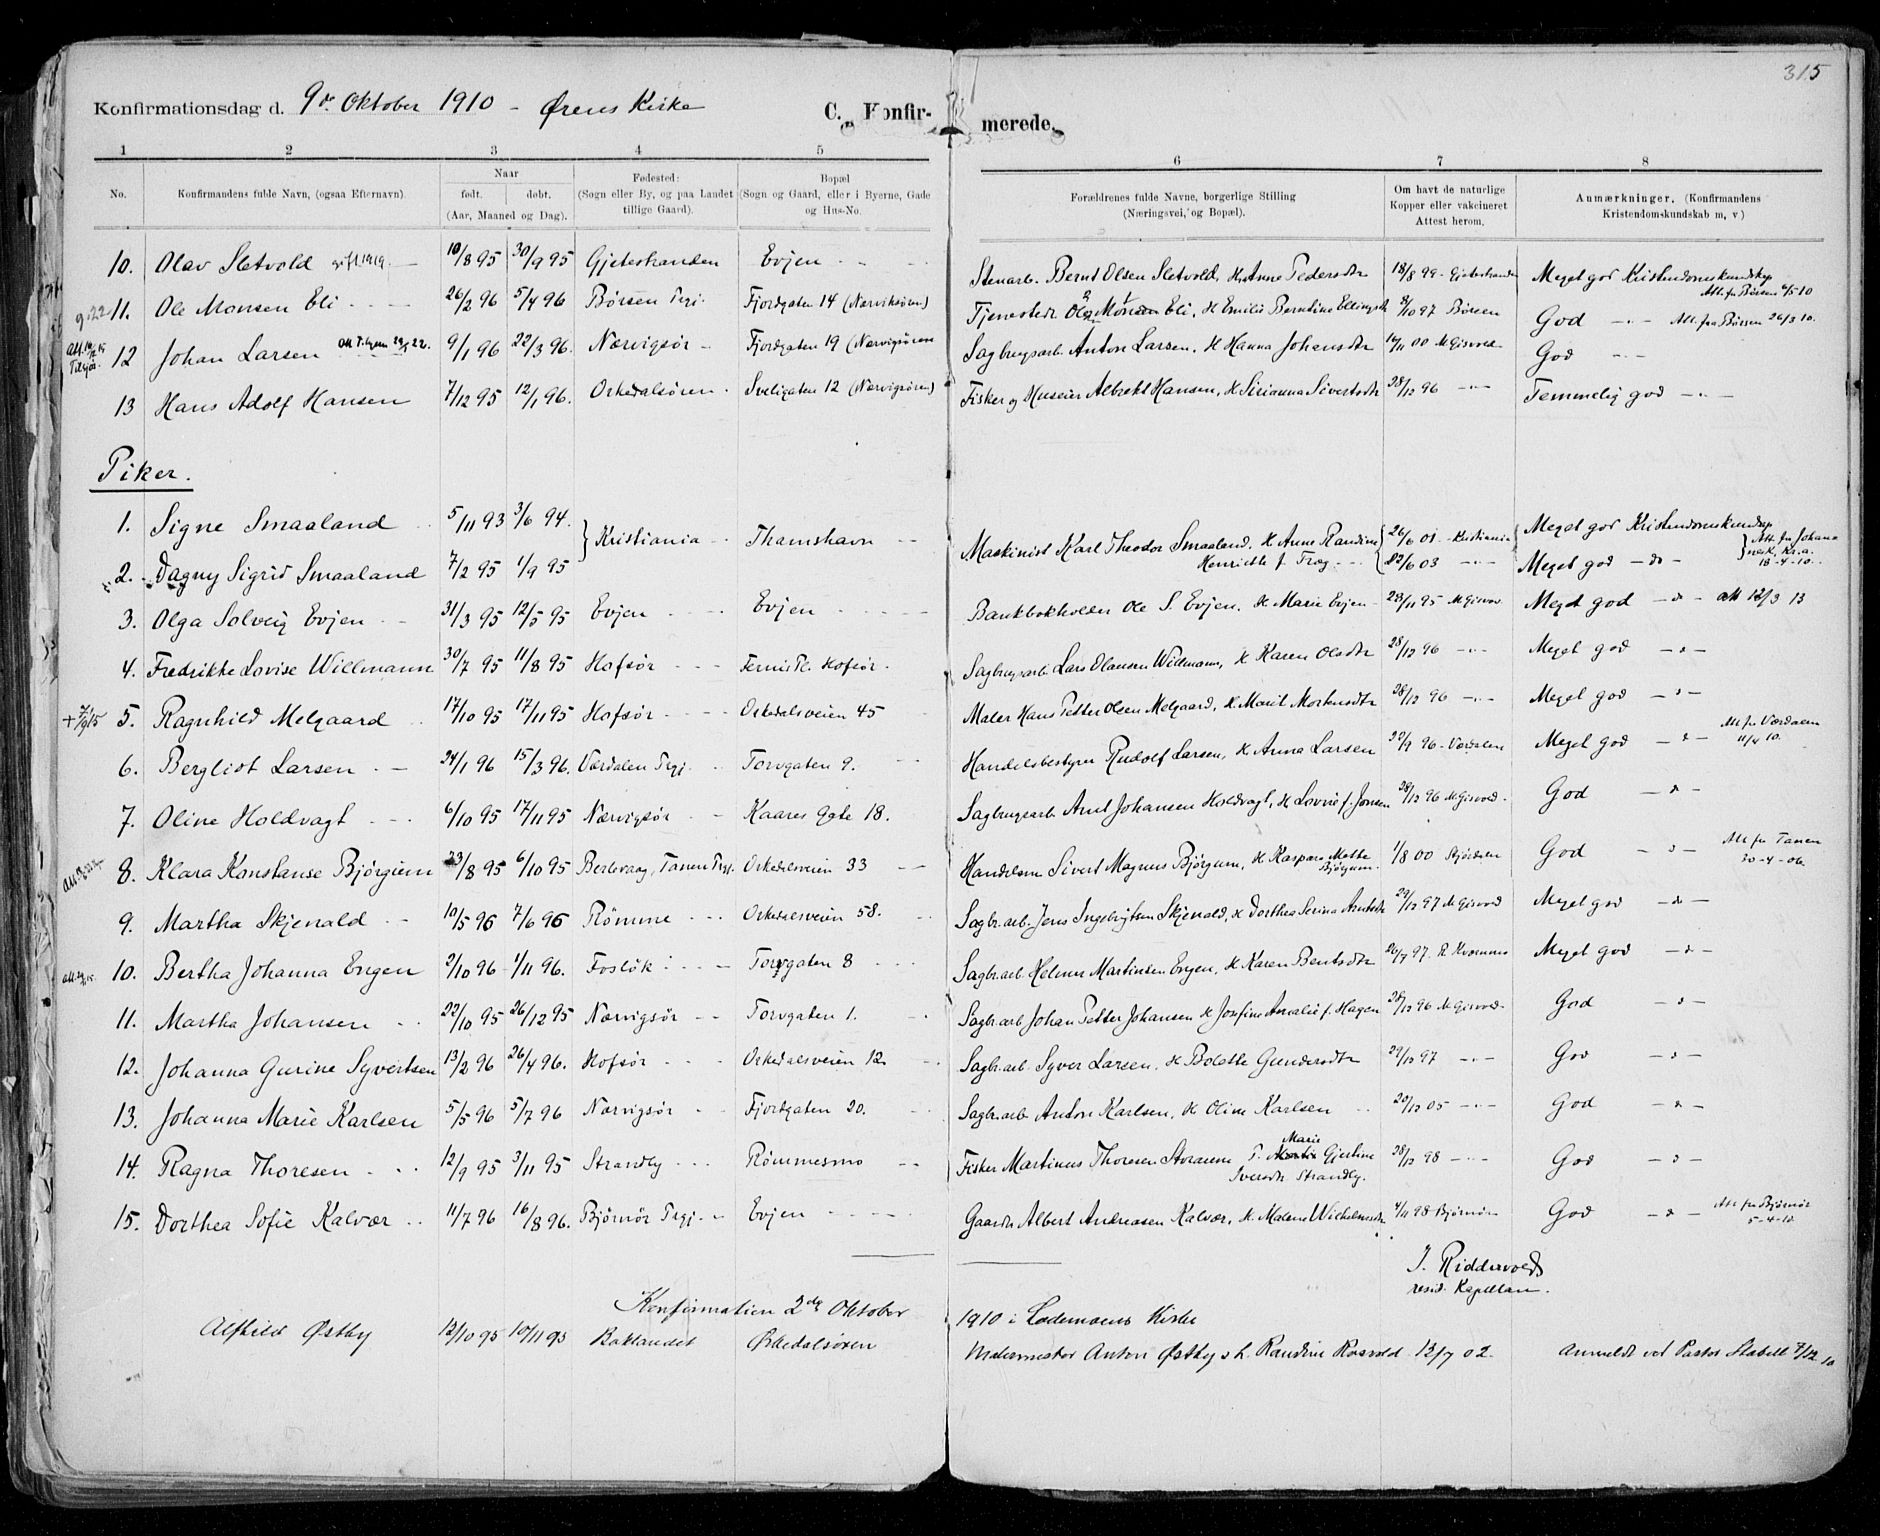 315
Konfirmationsdag d. 9de Oktober 1910 - Ørens Kirke C. Konfir- merede.
1 2 3 4 5 6 7 8
No. Konfirmandens fulde Navn, (ogsaa Efternavn). Naar født. døbt. (Aar, Maaned og Dag). Fødested: (Sogn eller By, og paa Landet tillige Gaard). Bopæl (Sogn og Gaard, eller i Byerne, Gade og Hus-No. Forældrenes fulde Navne, borgerlige Stilling (Næringsvei, og Bopæl). Om havt de naturlige Kopper eller vakcineret Attest herom. Anmærkninger, (Konfirmandens Kristendomskundskab m, v)
10. Olav Sletvold gift 1919. 10/8 95 30/9 95 Gjetestranden Evjen Stenarb. Bernt Olsen Sletvold, H. Anne Pedersdtr 18/8 99 - Gjetestranden Meget god Kristendomskundskap Att. fra Børsen 4/5 10
9-22 11. Ole Monsen Eli 26/2 96 5/4 96 Børsen Prgj. Fjordgaten 14 (Nærviksøren) Tjenestedr. Ole Monsen Eli, H. Emilie Berntine Ellingsdtr /10 97 Børsen God -"- Att. fra Børsen 26/3 10.
12 Johan Larsen 9/1 96 22/3 96. Nærvigsør Fjordgaten 19 (Nærvigsøren Sagbrugsarb. Anton Larsen, H Hanna Johansdtr 14/11 00 M Gisvold God -"-
13 Hans Adolf Hansen 7/12 95 12/1 96. Orkedalsøren Sveligaten 12 (Nærvigsøren) Fisker og Huseier Albrekt Hansen, H Sirianna Sivertsdtr 28/12 96 -"- Temmelig god -"-
Piker.
1. Signe Smaaland 5/11 93 3/6 94. Kristiania Thamshavn Maskinist Karl Theodor Smaaland, H Anne Randine 26/6 01 - Kristiania Meget god Kristendomskundskap Att. fra Johannesk. Kr.a. 18-4-10.
2. Dagny Sigrid Smaaland 7/2 95 1/9 95 Henriette f. Trøg 22/6 03 -"- Meget god -do-
3. Olga Solveig Evjen 31/3 95 12/5 95 Evjen Evjen Bankbokholder Ole S. Evjen, H Marie Evjen 28/11 95 M Gisvol Meget god -"- att 12/3 13
4. Fredrikke Lovise Willmann 30/7 95 11/8 95 Hofsør Fernis Pl. Hofsør. Sagbrugsarb. Lars Olausen Willmann, H Karen Olsdtr 28/12 96 -"- Meget god -"-
+ 7/9 15 5. Ragnhild Melgaard 17/10 95 17/11 95 Hofsør Orkedalsveien 45 Maler Hans Petter Olsen Melgaard, H. Marit Mortensdtr 28/12 96 -"- Meget god -"-
6. Bergliot Larsen 24/1 96 15/3 96. Værdalen Prgj. Torvgaten 9. Handelsbestyrer Rudolf Larsen, H Anna Larsen 30/9 96 - Værdalen Meget god -"- Att. fra Værdalen 11/4 10.
7. Oline Holdvagt 6/10 95 17/11 95 Nærvigsør Kaares gate 18. Sagbrugsarb. Arnt Johansen Holdvagt, H Lovise f. Jonsen 28/12 96 M Gisvold God -"-
8. Klara Konstanse Bjørgum 23/8 95 6/10 95 Berlevaag, Tanen Prgj. Orkedalsveien 33 Handelsm Sivert Magnus Bjørgum, H Kaspara Mette Bjørgum. 1/8 00 Stjørdalen God -"- Att fra Tanen 30-4-06.
9. Martha Skjenald 10/5 96 7/6 96 Rømme Orkedalsveien 58. Sagbr.arb. Jens Ingebrigtsen Skjenald, H Dorthea Serina Arntsdtr 29/12 97 M Gisvold Meget god -"-
10. Bertha Johanna Engen 2/10 96 1/11 96. Foslök Torvgaten 8 Sagbr.arb Helmer Martinsen Engen, H. Karen Bentsdtr 26/7 97. R Hvammen Meget god -"-
11. Martha Johansen 22/10 95 26/12 95 Nærvigsør Torvgaten 1. Sagbr.arb Johan Petter Johansen H Josefine Amalie f. Hagen 28/12 96 M Gisvold God -"-
12. Johanna Gurine Syvertsen 13/2 96 26/4 96. Hofsør Orkedalsveien 12. Sagbr.arb. Syver Larsen, H Bolette Gundersdtr 29/12 97 -"- God -"-
13. Johanna Marie Karlsen 5/5 96 5/7 96 Nærvigsør Fjordgaten 20. Sagbr.arb Anton Karlsen, H Oline Karlsen 20/12 05 -"- God -"-
14. Ragna Thoresen 12/9 95 3/11 95 Strandby Rømmesmo Fisker Martinus Thoresen Storaune P. Marie Gjertine Iversdtr Strandby. 28/12 98 -"- God -"-
15. Dorthea Sofie Kalvær 11/7 96 16/8 96. Bjørnør Prgj. Evjen Gaardbr. Albert Andreasen Kalvær, H. Malene Wilhelmsdtr 4/11 98 Bjørnør God -"- Att fra Bjørnør 5-4-10.
J. Riddervold
resid. Kapellan.
Konfirmation 2den Oktober 1910 i Lademoens Kirke
Alfhild Østby 13/10 95 10/11 95 Baklandet Orkedalsøren Malermester Anton Østby o h. Randine Rosvold 12/7 02. Anmeldt ved Pastor Stabell 7/12 10